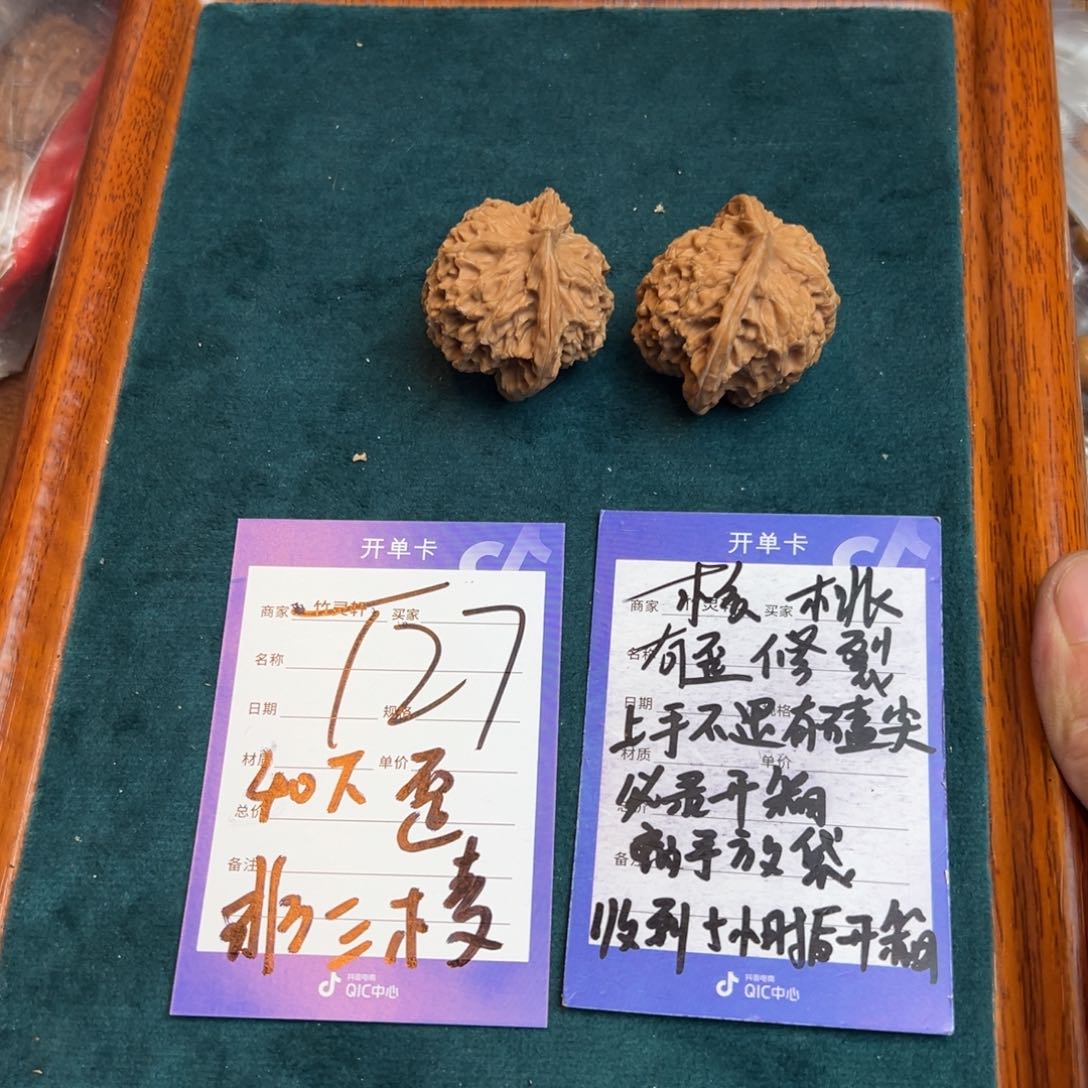 开单卡
商家 竹灵轩 买家
T27
名称
日期 规格
材质 单价
40不歪
总价
备注
非三棱
抖音电商
QIC中心
开单卡
商家 买家
核桃
名称
有歪修裂
日期 规格
上手不退有磕尖
材质 单价
必录开箱
备注
新手放袋
收到十小时后开箱
抖音电商
QIC中心